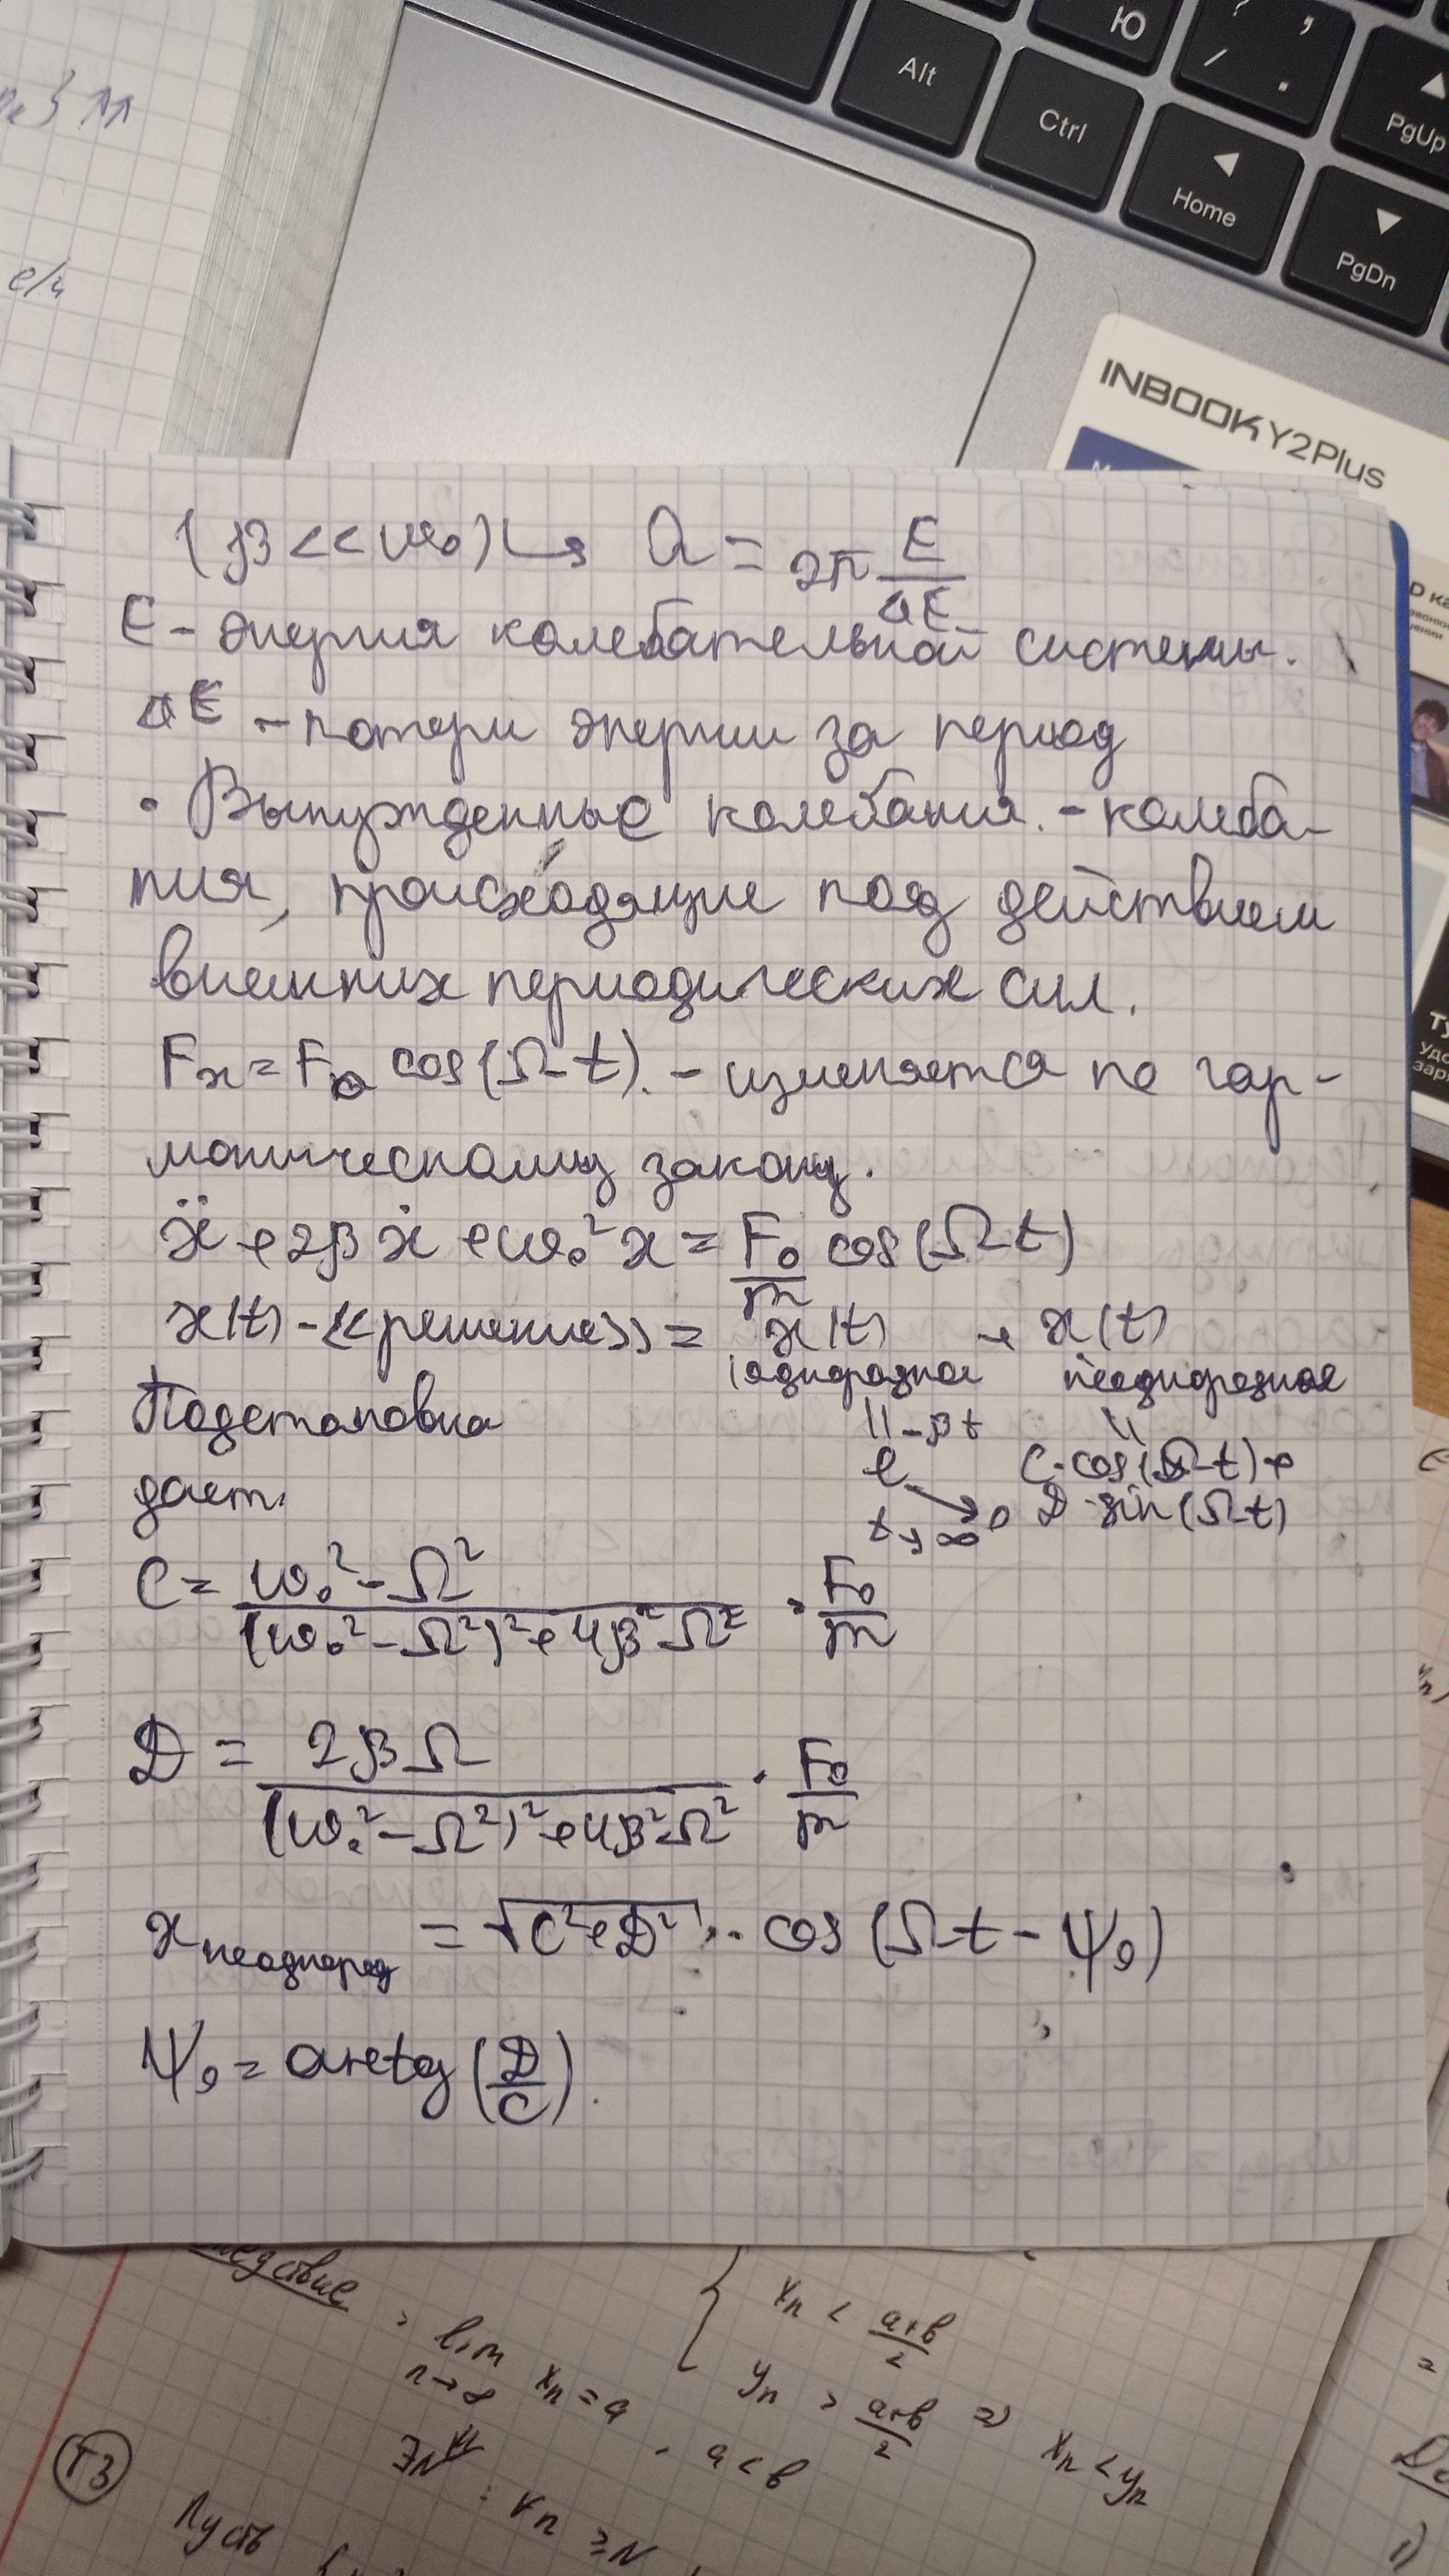 Ю
?
,
/
.
Alt
Ctrl
PgUp
Home
PgDn
INBOOK Y2Plus
е/ч
(β << ω₀) ↪ Q = 2π E/ΔE
E - энергия колебательной системы.
ΔE - потери энергии за период
• Вынужденные колебания. - колеба-
ния, происходящие под действием
внешних периодических сил.
Fx = F₀ cos(Ωt). - изменяется по гар-
моническому закону.
ẍ + 2βẋ + ω₀²x = F₀/m cos(Ωt)
x(t) - «решение» = x(t) однородное + x(t) неоднородное
Подстановка
дает:
|| e^(-βt) → 0
t→∞
|| C·cos(Ωt) +
D·sin(Ωt)
C = (ω₀² - Ω²)/((ω₀² - Ω²)² + 4β²Ω²) · F₀/m
D = 2βΩ/((ω₀² - Ω²)² + 4β²Ω²) · F₀/m
x неоднород = √(C² + D²) · cos(Ωt - Ψ₀)
Ψ₀ = arctg(D/C).
lim xn = a
n→∞
, a < b
{ xn < (a+b)/2
yn > (a+b)/2 ⇒ xn < yn
T3
∃N : ∀n ≥ N
Пусть
1)